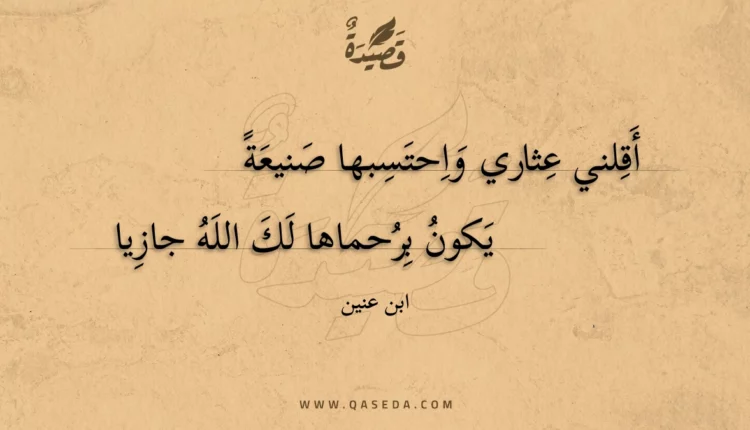 قَصِيدَةٌ
أَقِلني عِثاري وَاِحتَسِبها صَنيعَةً
يَكونُ بِرُحماها لَكَ اللَهُ جازِيا
ابن عنين
WWW.QASEDA.COM